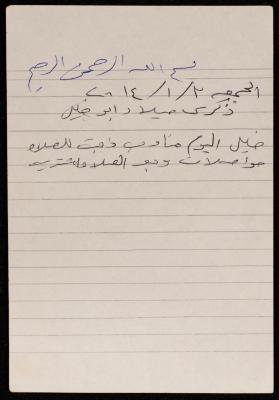 بسم الله الرحمن الرحيم
الجمعة ٢٠١٤/١/٣
ذكرى ميلاد ابو خليل
خليل اليوم مناوب ذهبت للصلاة
مواصلات وبعد الصلاة اشتريت